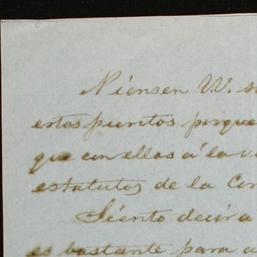 Piensen W. s
estos puntos porque
que con ellos á la v
estatutos de la Con
Siento decir a
es bastante para a